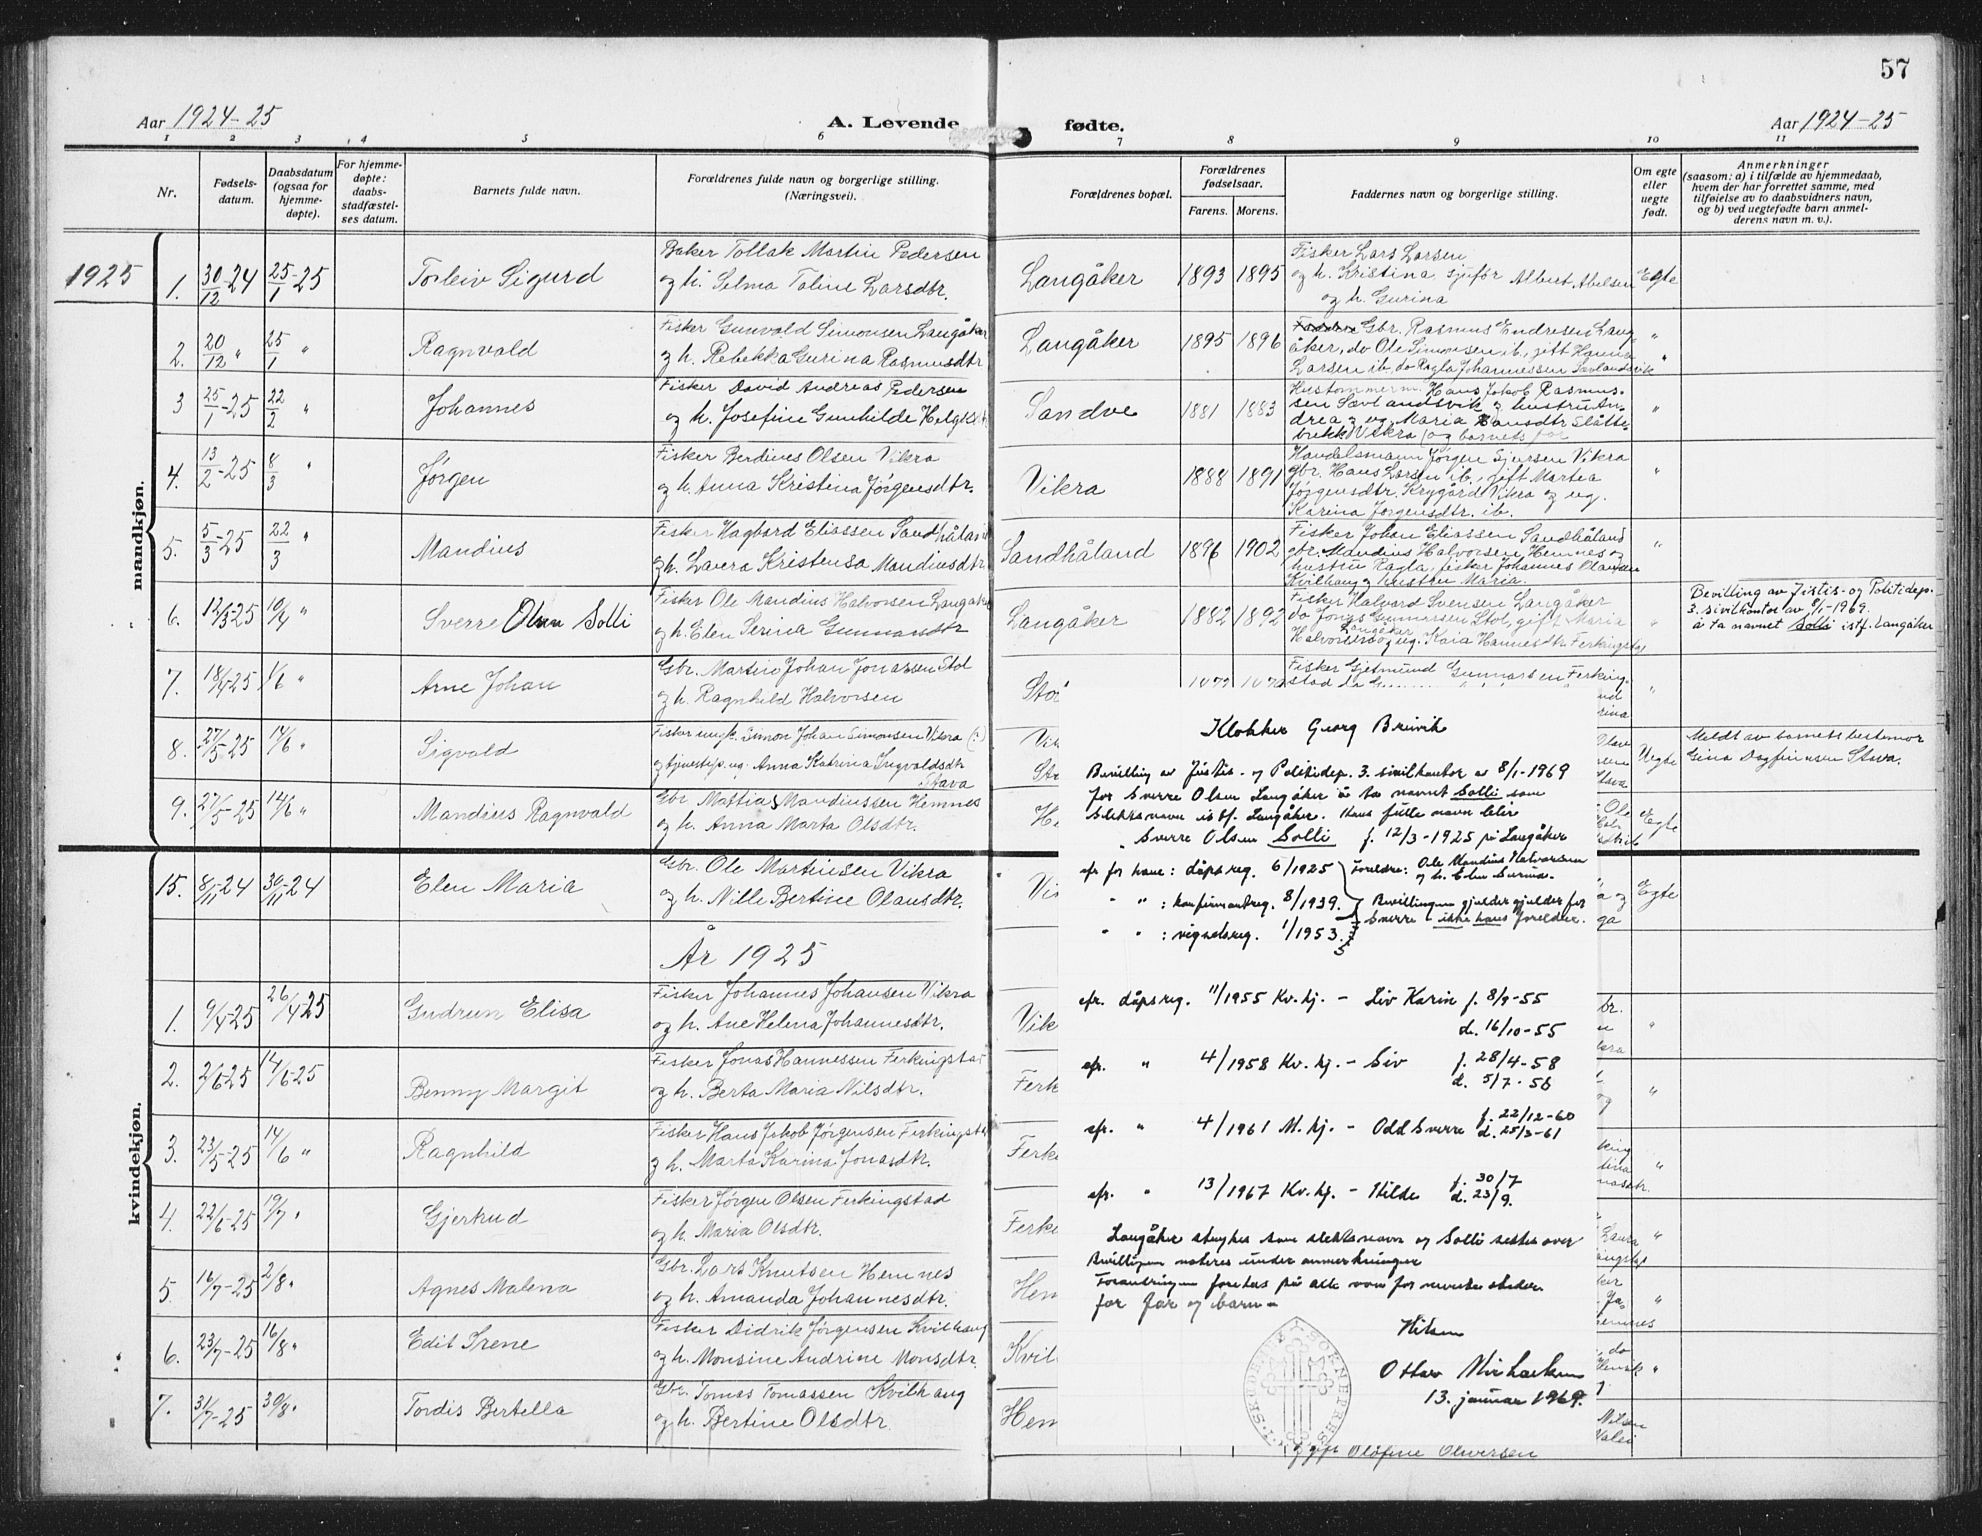 57
Aar 1924-25
A. Levende fødte.
Aar 1924-25
1 2 3 4 5 6 7 8 9 10 11
Nr.
Fødsels-
datum.
Daabsdatum
(ogsaa for
hjemme-
døpte).
For hjemme-
døpte:
daabs-
stadfæstel-
ses datum.
Barnets fulde navn.
Forældrenes fulde navn og borgerlige stilling.
(Næringsvei).
Forældrenes bopæl.
Forældrenes
fødselsaar.
Farens. Morens.
Faddernes navn og borgerlige stilling.
Om egte
eller
uegte
født.
Anmerkninger
(saasom: a) i tilfælde av hjemmedaab,
hvem der har forrettet samme, med
tilføielse av to daabsvidners navn,
og b) ved uegtefødte barn anmel-
derens navn m. v.).
1925
mandkjøn.
1. 30/12-24 25/1-25 Torleiv Sigurd
Baker Tollak Martin Pedersen
og h. Selma Taline Larsdtr.
Langåker 1893 1895
Fisker Lars Larsen
og h. Kristina, sjøfør Albert Abelsen
og h. Gurina
Egte
2. 20/12 " 25/1 " Ragnvald
Fisker Gunvald Simonsen Langåker
og h. Rebekka Gurina Rasmusdtr
Langåker 1895 1896
Gbr. Rasmus Endresen Lang-
åker, do Ole Simonsen ib., gift Hanna
Larsen ib, do Ragla Johannessen Sævlandsvik
"
3 25/1-25 22/2 " Johannes
Fisker David Andreas Pedersen
og h. Josefine Gunhilde Helgesd
Sandve 1881 1883
Hustømmerm. Hans Jakob Rasmus-
sen Sævlandsvik og hustru An-
drea og ug. Maria Hansdtr Slåtte-
brekk Vikra (og barnets far
"
4. 13/2-25 8/3 " Jørgen
Fisker Berdines Olsen Vikra
og h. Anna Kristina Jørgensdtr.
Vikra 1888 1891
Handelsmann Jørgen Sjursen Vikra
gbr. Hans Larsen ib., gift Martea
Jørgensdtr. Krygård Vikra og ug.
Karina Jørgensdtr. ib.
"
5. 5/3-25 22/3 " Mandius
Fisker Hagbard Eliassen Sandhåland
og h. Lavera Kristensa Mandiusdtr
Sandhåland 1896 1902
Fisker Johan Eliassen Sandhåland
gbr. Mandius Halvorsen Hemnes og
hustru Ragla, fisker Johannes Olausen
Kvilhaug og hustru Maria.
"
6. 12/3-25 19/4 " Sverre Olsen Solli
Fisker Ole Mandius Halvorsen Langåker
og h. Elen Serina Gunnarsdtr
Langåker 1882 1892
Fisker Halvard Svensen Langåker
do Jonas Gunnarsen Stol, gift Maria
Halvorsen Langåker og ug. Kaia Hannesdtr Ferkingstad
"
Bevilling av Justis- og Politidep.
3. sivilkontor av 8/1-1969.
å ta navnet Solli istf. Langåker
7. 18/4-25 1/6 " Arne Johan
Gbr. Martin Johan Jonassen Stol
og h. Ragnhild Halvorsen
Fisker Gjetmund Gunnarsen Ferking-
stad
"
8. 27/5-25 14/6 " Sigvald
Fisker ungk. Simon Johan Simonsen Vikra (?)
og tjenestep. ug. Anna Katrina Ingvaldsdtr
Stava
Uegte
Meldt av barnets bestemor
Gina Dagfinnsen Stava.
9. 27/5-25 14/6 " Mandius Ragnvald
Gbr Mattias Mandiussen Hemnes
og h. Anna Marta Olsdtr.
Egte
kvindekjøn.
15. 8/11-24 30/11-24 Elen Maria
Gbr. Ole Martinsen Vikra
og h. Nille Bertine Olausdtr.
Egte
År 1925
1. 9/4-25 26/4-25 Gudrun Elisa
Fisker Johannes Johansen Vikra
og h. Ane Helena Johannesdtr.
"
2. 2/6-25 14/6-25 Benny Margit
Fisker Jonas Hannessen Ferkingstad
og h. Berta Maria Nilsdtr.
"
3. 23/5-25 14/6 " Ragnhild
Fisker Hans Jakob Jørgensen Ferkingstad
og h. Marta Karina Jonasdtr.
"
4. 22/6-25 19/7 " Gjertrud
Fisker Jørgen Olsen Ferkingstad
og h. Maria Olsdtr.
"
5. 16/7-25 2/8 " Agnes Malena
Gbr. Lars Knutsen Hemnes
og h. Amanda Johannesdtr.
"
6. 23/7-25 16/8 " Edit Irene
Fisker Didrik Jørgensen Kvilhaug
og h. Monsine Andrine Monsdtr.
"
7. 31/7-25 30/8 " Tordis Bertella
Gbr. Tomas Tomassen Kvilhaug
og h. Bertine Olsdtr.
Klokker Georg Breivik
Bevilling av Justis- og Politidep. 3. sivilkontor av 8/1-1969
for Sverre Olsen Langåker å ta navnet Solli som
slektsnavn istf. Langåker. Hans fulle navn blir
Sverre Olsen Solli f. 12/3-1925 på Langåker
cfr for ham: dåpsreg. 6/1925 Foreldre: Ole Mandius Halvorsen
og h. Elen Serina.
" " : konfirmantreg. 8/1939. Bevillingen gjelder gjelder for
Sverre - ikke hans foreldre.
" " : vigselsreg. 1/1953.
cfr. dåpsreg. 11/1955 Kv. kj. - Liv Karin f. 8/9-55
d. 16/10-55
cfr. " 4/1958 Kv. kj. - Siv f. 28/4-58
d. 5/7-58
cfr. " 4/1961 M. kj. - Odd Sverre f. 22/12-60
d. 25/3-61
cfr. " 13/1967 Kv. kj. - Hilde f. 30/7
d. 23/9.
Langåker strykes som slektsnavn og Solli settes over
Bevillingen noteres under anmerkninger
Forandringen foretas på alle ovenfor nevnte steder
for far og barn -
Hilsen
13. januar 1969.
SOKNEPRES